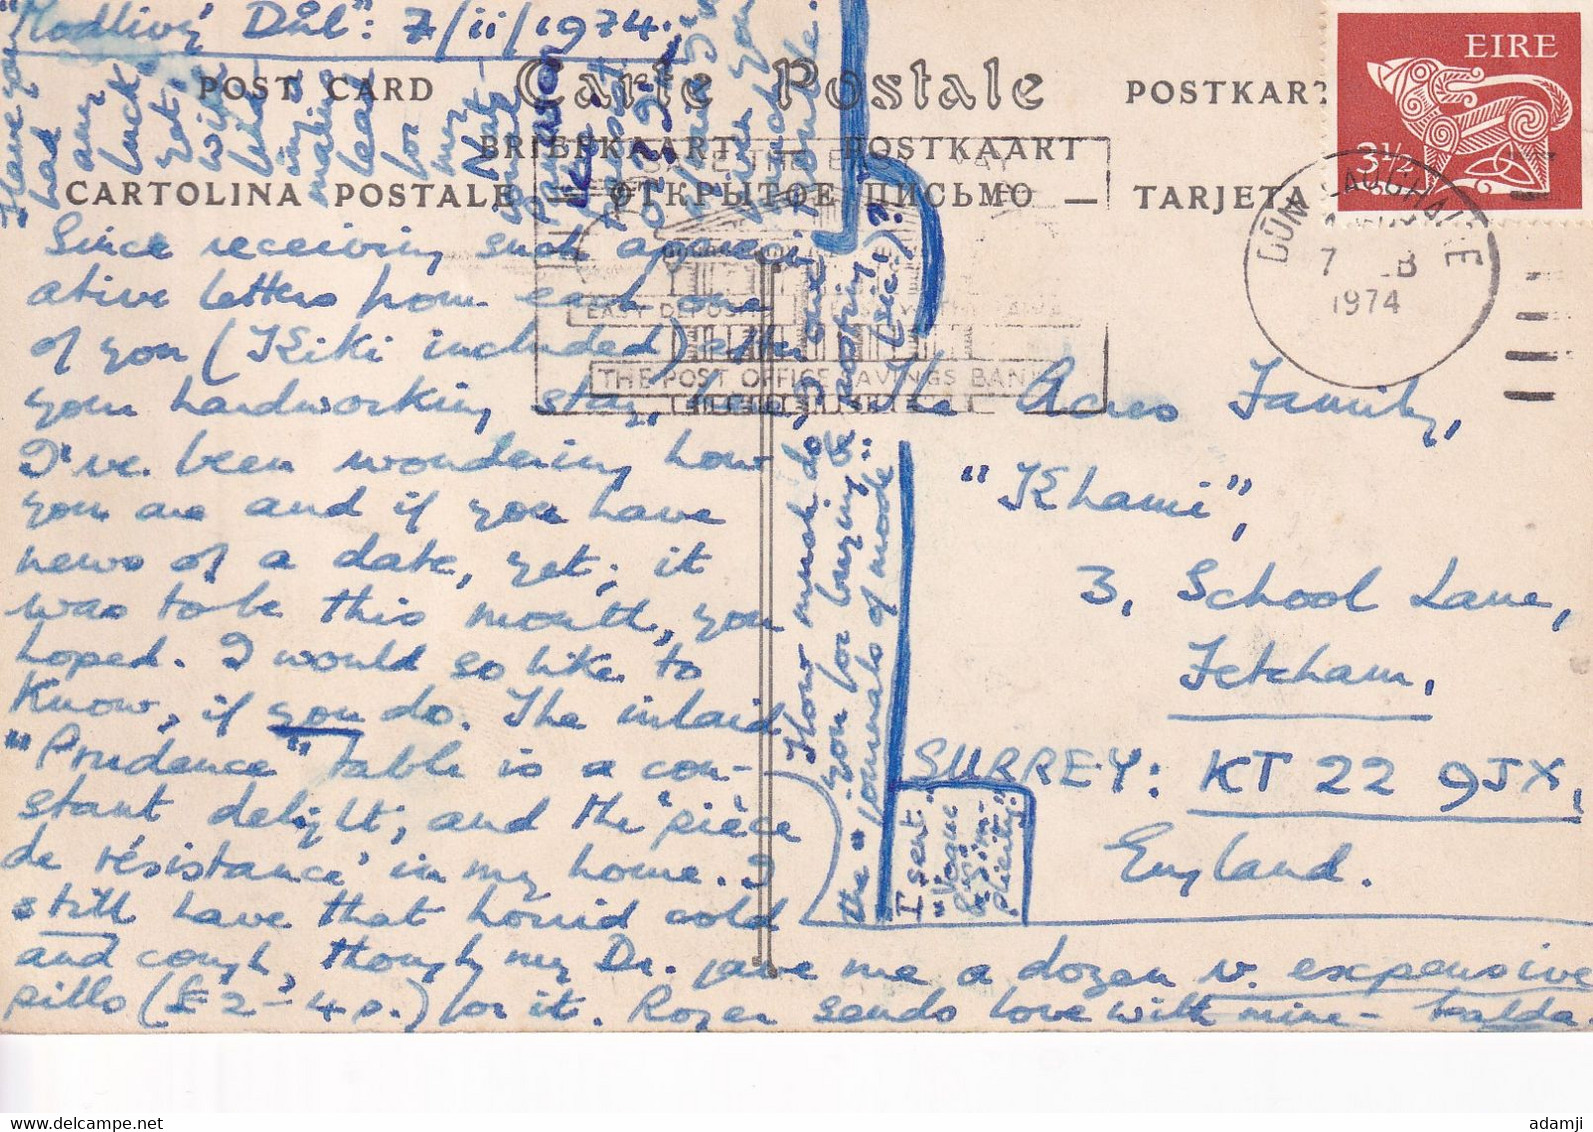 "Modlivý Důl": 7/ii/1974.
POST CARD Carte Postale POSTKAR
BRIEFKAART — POSTKAART
CARTOLINA POSTALE — ОТКРЫТОЕ ПИСЬМО — TARJETA
EIRE
3½
DÚN LAOGHAIRE
7 FEB
1974
EASY DEPOSIT
THE POST OFFICE SAVINGS BANK
Have you
had any
luck
yet
with
the
in
making
lead
for
my
Since receiving such appreci-
ative letters from each one
of you (Kiki included) after
your hardworking stay, here
I've been wondering how
you are and if you have
news of a date, yet; it
was to be this month, you
hoped. I would so like to
know, if you do. The inlaid
"Prudence" table is a con-
stant delight, and the 'pièce
de résistance' in my home. I
still have that horrid cold
and cough, though my Dr. gave me a dozen v. expensive
pills (£2-4p.) for it. Roger sends love with mine -
How much do I owe
you for buying & posting
the "journals of mode" (sic)?
I sent
"Vogue
& Sim-
plicity."
The Acres Family,
"Khami",
3, School Lane,
Fetcham,
SURREY: KT 22 9JX,
England.
adamji